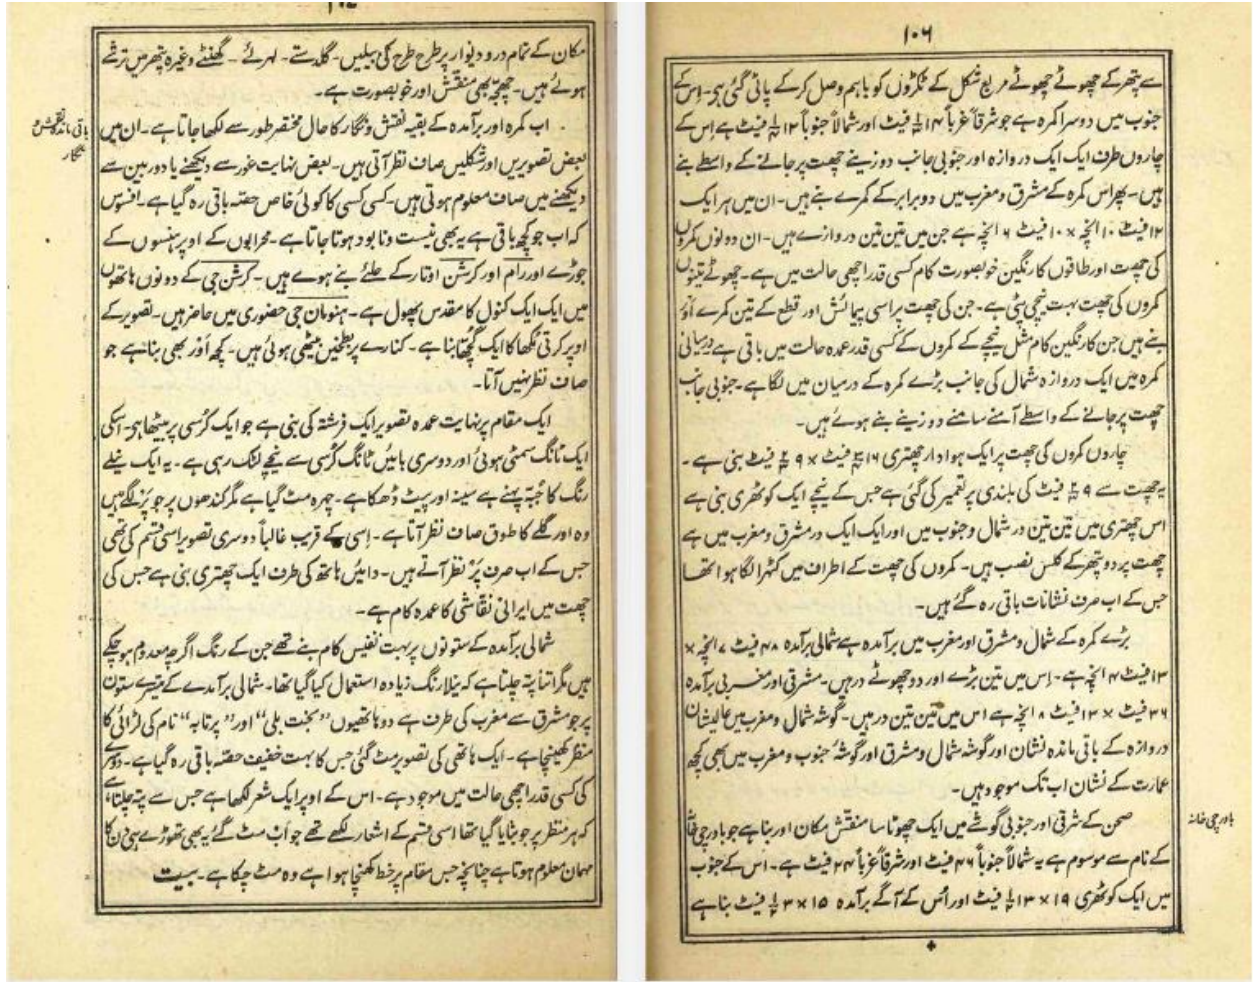 ۱۰۶
سے پتھر کے چھوٹے چھوٹے مربع شکل کے ٹکڑوں کو باہم وصل کرکے پاٹی گئی ہی۔ اِس کے
جنوب میں دوسرا کمرہ ہے جو شرقاً غرباً ۱۴ فیٹ اور شمالاً جنوباً ۱۲ فیٹ ہے اِس کے
چاروں طرف ایک ایک دروازہ اور جنوبی جانب دو زینے چھت پر جانے کے واسطے بنے
ہیں۔ پھر اس کمرہ کے مشرق و مغرب میں دو برابر کے کمرے بنے ہیں۔ ان میں ہر ایک
۱۲ فیٹ ۱۰ انچہ × ۱۰ فیٹ ۶ انچہ ہے جن میں تین تین دروازے ہیں۔ ان دونوں کمروں
کی چھت اور طاقوں کا رنگین خوبصورت کام کسی قدر اچھی حالت میں ہے۔ چھوٹے تینوں
کمروں کی چھت بہت نیچی پٹی ہے۔ جن کی چھت پر اسی پیمائش اور قطع کے تین کمرے اَوْر
بنے ہیں جن کا رنگین کام مثل نیچے کے کمروں کے کسی قدر عمدہ حالت میں باقی ہے درمیانی
کمرہ میں ایک دروازہ شمال کی جانب بڑے کمرہ کے درمیان میں لگا ہے۔ جنوبی جانب
چھت پر جانے کے واسطے آمنے سامنے دو زینے بنے ہوئے ہیں۔
چاروں کمروں کی چھت پر ایک ہوادار چھتری ۱۶ فیٹ × ۹ فیٹ بنی ہے۔
یہ چھت سے ۹ فیٹ کی بلندی پر تعمیر کی گئی ہے جس کے نیچے ایک کوٹھری بنی ہے
اس چھتری میں تین تین در شمال و جنوب میں اور ایک ایک در مشرق و مغرب میں ہے
چھت پر دو پتھر کے کلس نصب ہیں۔ کمروں کی چھت کے اطراف میں کٹہرا لگا ہوا تھا
جس کے اب صرف نشانات باقی رہ گئے ہیں۔
بڑے کمرہ کے شمال و مشرق اور مغرب میں برآمدہ ہے شمالی برآمدہ ۴۸ فیٹ ۷ انچہ ×
۱۳ فیٹ ۴ انچہ ہے۔ اِس میں تین بڑے اور دو چھوٹے در ہیں۔ مشرقی اور مغربی برآمدہ
۳۶ فیٹ × ۱۳ فیٹ ۸ انچہ ہے اس میں تین تین در ہیں۔ گوشہ شمال و مغرب میں عالیشان
دروازہ کے باقی ماندہ نشان اور گوشہ شمال و مشرق اور گوشۂ جنوب و مغرب میں بھی کچھ
عمارت کے نشان اب تک موجود ہیں۔
باورچی خانہ
صحن کے شرقی اور جنوبی گوشے میں ایک چھوٹا سا منقش مکان اور بنا ہے جو باورچی خانہ
کے نام سے موسوم ہے یہ شمالاً جنوباً ۴۶ فیٹ اور شرقاً غرباً ۲۴ فیٹ ہے۔ اس کے جنوب
میں ایک کوٹھری ۱۹ × ۱۳ فیٹ اور اُس کے آگے برآمدہ ۱۵ × ۳ فیٹ بنا ہے
مکان کے تمام در و دیوار پر طرح طرح کی بیلیں۔ گلدستے۔ لہرئے۔ گھنٹے وغیرہ پتھر میں ترشے
ہوئے ہیں۔ چھجّہ بھی منقش اور خوبصورت ہے۔
باقی ماندہ نقش و
نگار
اب کمرہ اور برآمدہ کے بقیہ نقش و نگار کا حال مختصر طور سے لکھا جاتا ہے۔ ان میں
بعض تصویریں اور شکلیں صاف نظر آتی ہیں۔ بعض نہایت غور سے دیکھنے یا دوربین سے
دیکھنے میں صاف معلوم ہوتی ہیں۔ کسی کسی کا کوئی خاص حصّہ باقی رہ گیا ہے۔ افسوس
کہ اب جو کچھ باقی ہے یہ بھی نیست و نابود ہوتا جاتا ہے۔ محرابوں کے اوپر ہنسوں کے
جوڑے اور رام اور کرشن اوتار کے حلئے بنے ہوے ہیں۔ کرشن جی کے دونوں ہاتھوں
میں ایک ایک کنول کا مقدس پھول ہے۔ ہنومان جی حضوری میں حاضر ہیں۔ تصویر کے
اوپر کرتی نکھا کا ایک گچھا بنا ہے۔ کنارے پر بطخیں بیٹھی ہوئی ہیں۔ کچھ اَوْر بھی بنا ہے جو
صاف نظر نہیں آتا۔
ایک مقام پر نہایت عمدہ تصویر ایک فرشتہ کی بنی ہے جو ایک کُرسی پر بیٹھا ہی۔ اسکی
ایک ٹانگ سمٹی ہوئی اور دوسری بائیں ٹانگ کُرسی سے نیچے لٹک رہی ہے۔ یہ ایک نیلے
رنگ کا جُبّہ پہنے ہے سینہ اور پیٹ ڈھکا ہے۔ چہرہ مٹ گیا ہے مگر کندھوں پر جو پَر لگے ہیں
وہ اور گلے کا طوق صاف نظر آتا ہے۔ اِسی کے قریب غالباً دوسری تصویر اسی قسم کی تھی
جس کے اب صرف پَر نظر آتے ہیں۔ داہیں ہاتھ کی طرف ایک چھتری بنی ہے جس کی
چھت میں ایرانی نقاشی کا عمدہ کام ہے۔
شمالی برآمدہ کے ستونوں پر بہت نفیس کام بنے تھے جن کے رنگ اگرچہ معدوم ہو چکے
ہیں مگر اتنا پتہ چلتا ہے کہ نیلا رنگ زیادہ استعمال کیا گیا تھا۔ شمالی برآمدے کے تیسرے ستون
پر جو مشرق سے مغرب کی طرف ہے دو ہاتھیوں ”بخت بلی“ اور ”پرتابہ“ نام کی لڑائی کا
منظر کھینچا ہے۔ ایک ہاتھی کی تصویر مٹ گئی جس کا بہت خفیف حصّہ باقی رہ گیا ہے۔ دوسرے
کی کسی قدر اچھی حالت میں موجود ہے۔ اس کے اوپر ایک شعر لکھا ہے جس سے پتہ چلتا ہے
کہ ہر منظر پر جو بنایا گیا تھا اسی قسم کے اشعار لکھے تھے جو اب مٹ گئے یہ بھی تھوڑے ہی دن کا
مہمان معلوم ہوتا ہے چنانچہ جس مقام پر خط کھنچا ہوا ہے وہ مٹ چکا ہے۔ بیت